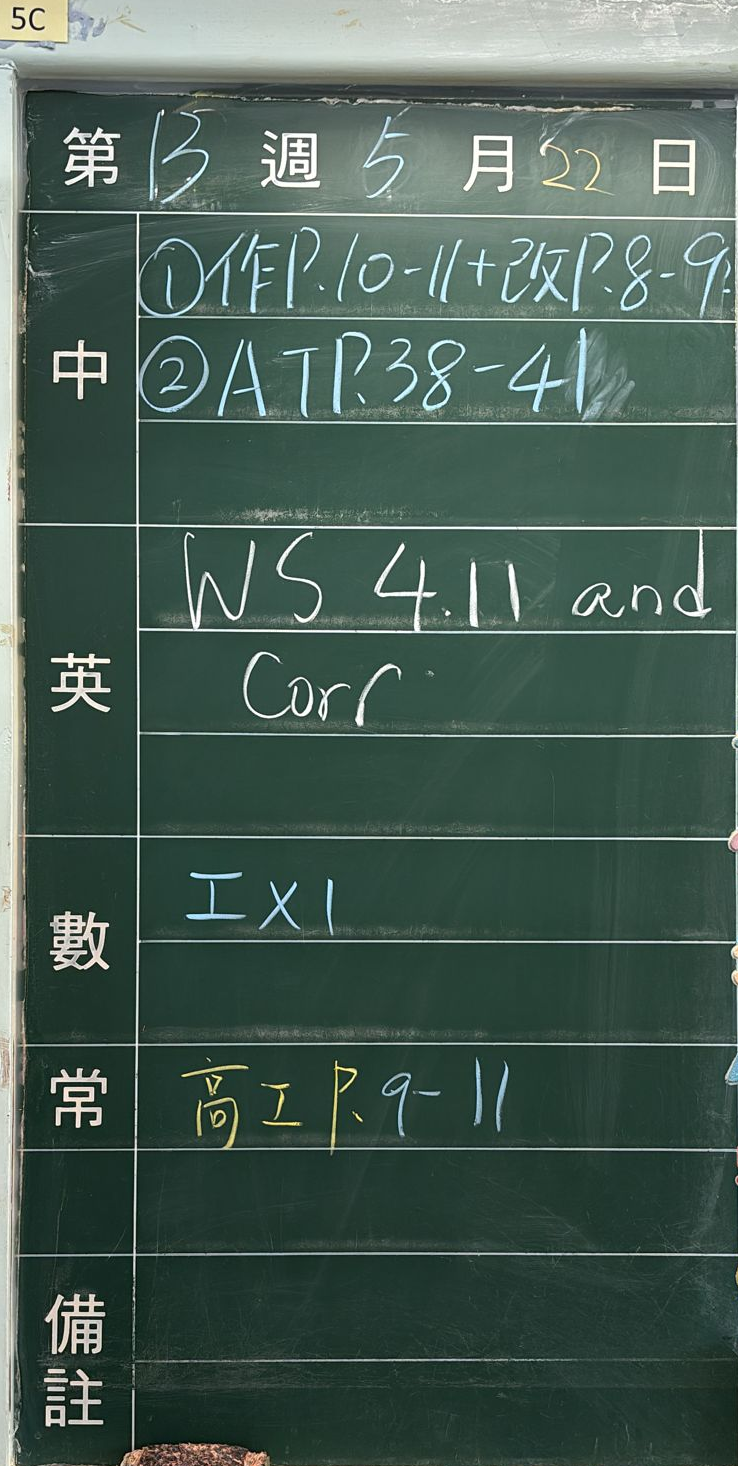 5C
第 13 週 5 月 22 日
中
①作P.10-11+改P.8-9
②ATP.38-41
英
WS 4.11 and
Corr
數
工X1
常
高工P.9-11
備註